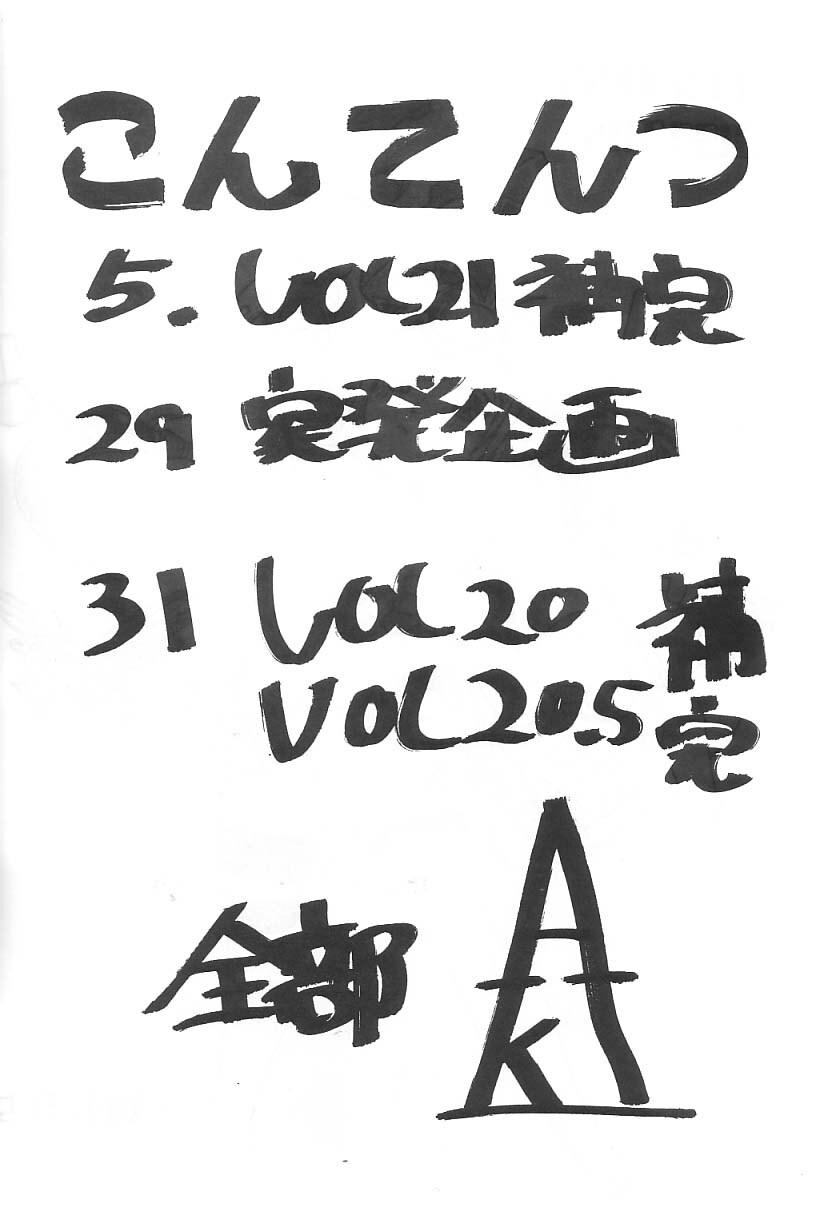 こんてんつ
5. VOL21 補完
29 突発企画
31 VOL20
VOL20.5 補完
全部
AK